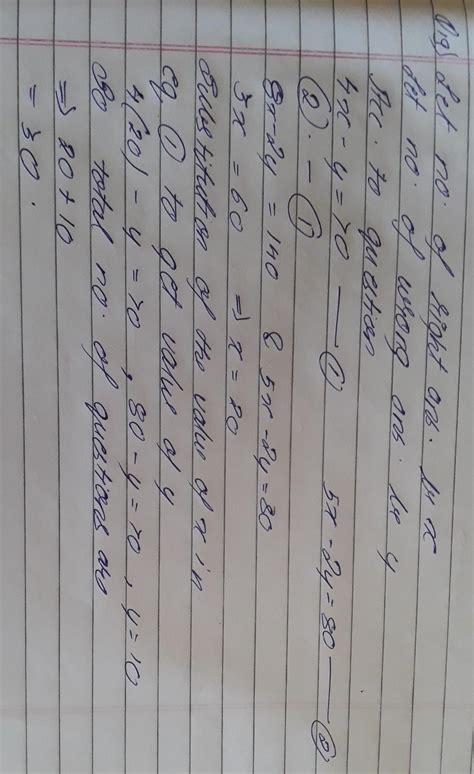 Let no. of right ans. be x
Let no. of wrong ans. be y
Acc. to question
4x - y = 70 —— ① 5x - 2y = 80 —— ②
②. - ①
8x - 2y = 140 & 5x - 2y = 80
3x = 60 ⇒ x = 20
Substitution of the value of x in
eq ① to get value of y
4(20) - y = 70 , 80 - y = 70 , y = 10
So total no. of questions are
⇒ 20 + 10
= 30 .